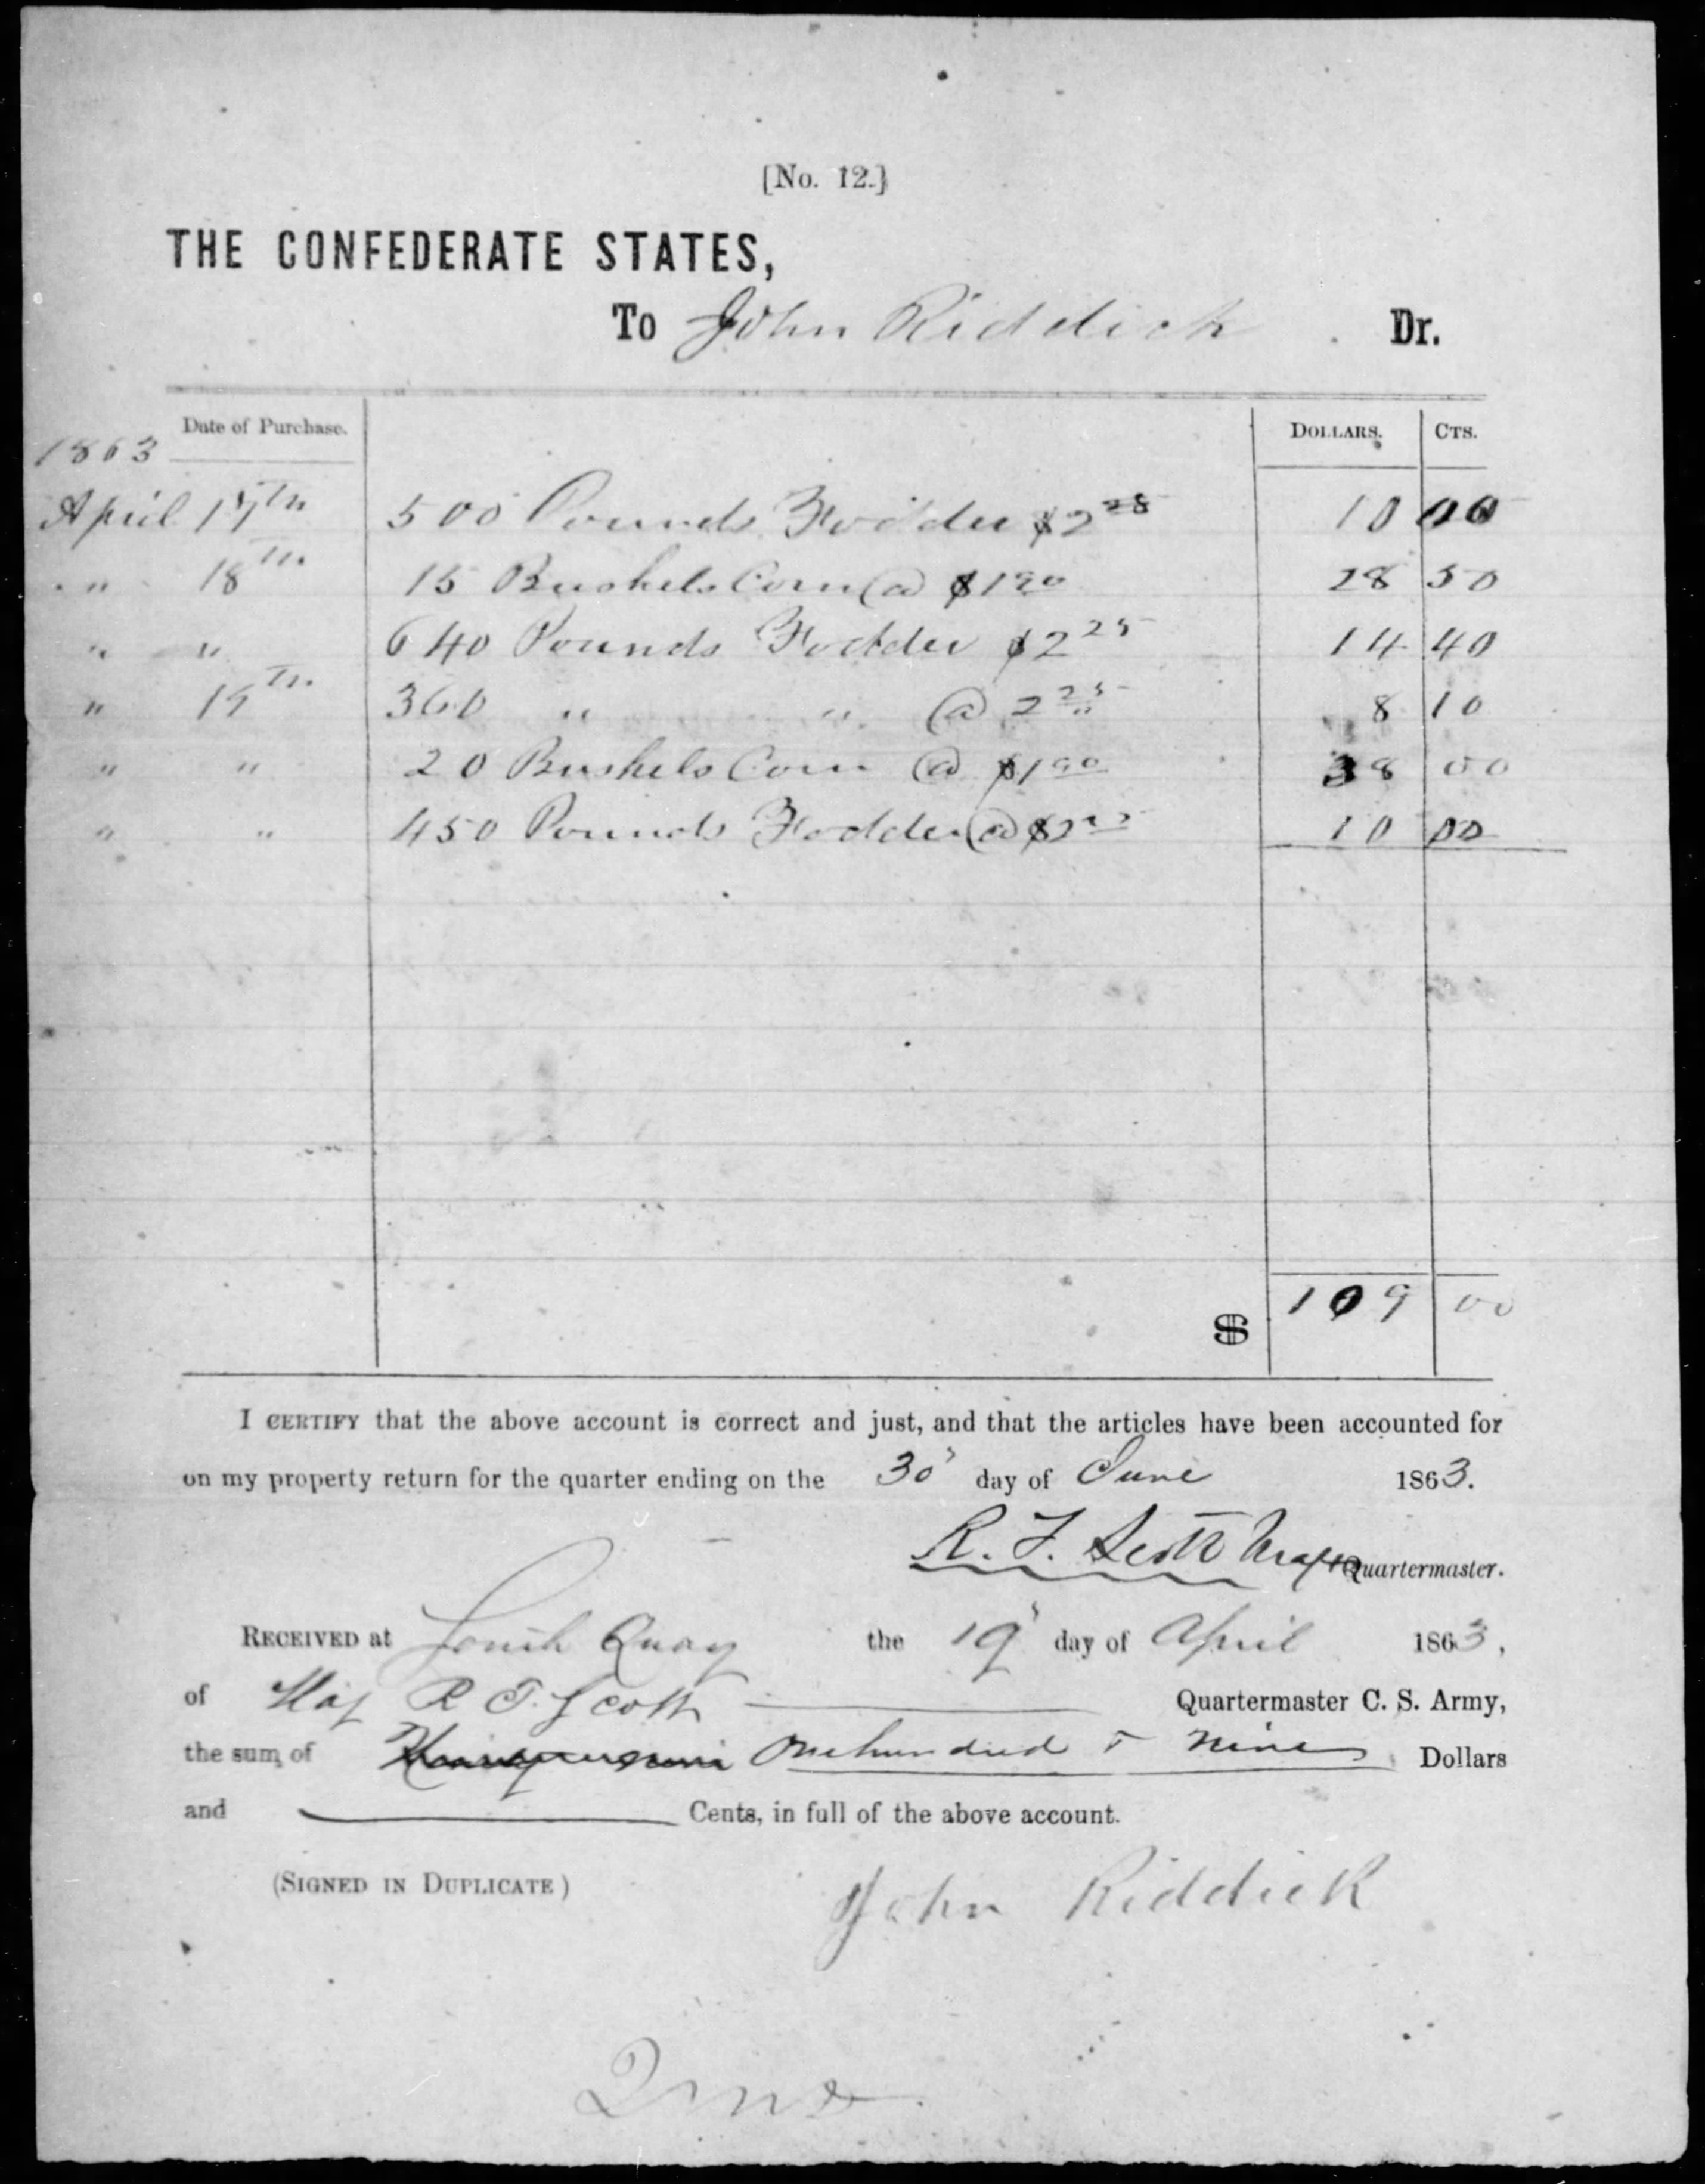 [No. 12.]
THE CONFEDERATE STATES,
To John Riddick Dr.
Date of Purchase. DOLLARS. CTS.
1863
April 17th 500 Pounds Fodder $2 10 00
" 18th 15 Bushels Corn @ $1 90 28 50
" " 640 Pounds Fodder $2 25 14 40
" 19th 360 " " @ 2 25 8 10
" " 20 Bushels Corn @ $1 90 38 00
" " 450 Pounds Fodder @ $2 10 00
$ 109 00
I CERTIFY that the above account is correct and just, and that the articles have been accounted for
on my property return for the quarter ending on the 30 day of June 1863.
R. T. Scott Maj & Quartermaster.
RECEIVED at South Quay the 19 day of April 1863,
of Maj R T. Scott Quartermaster C. S. Army,
the sum of One hundred & nine Dollars
and Cents, in full of the above account.
(SIGNED IN DUPLICATE)
John Riddick